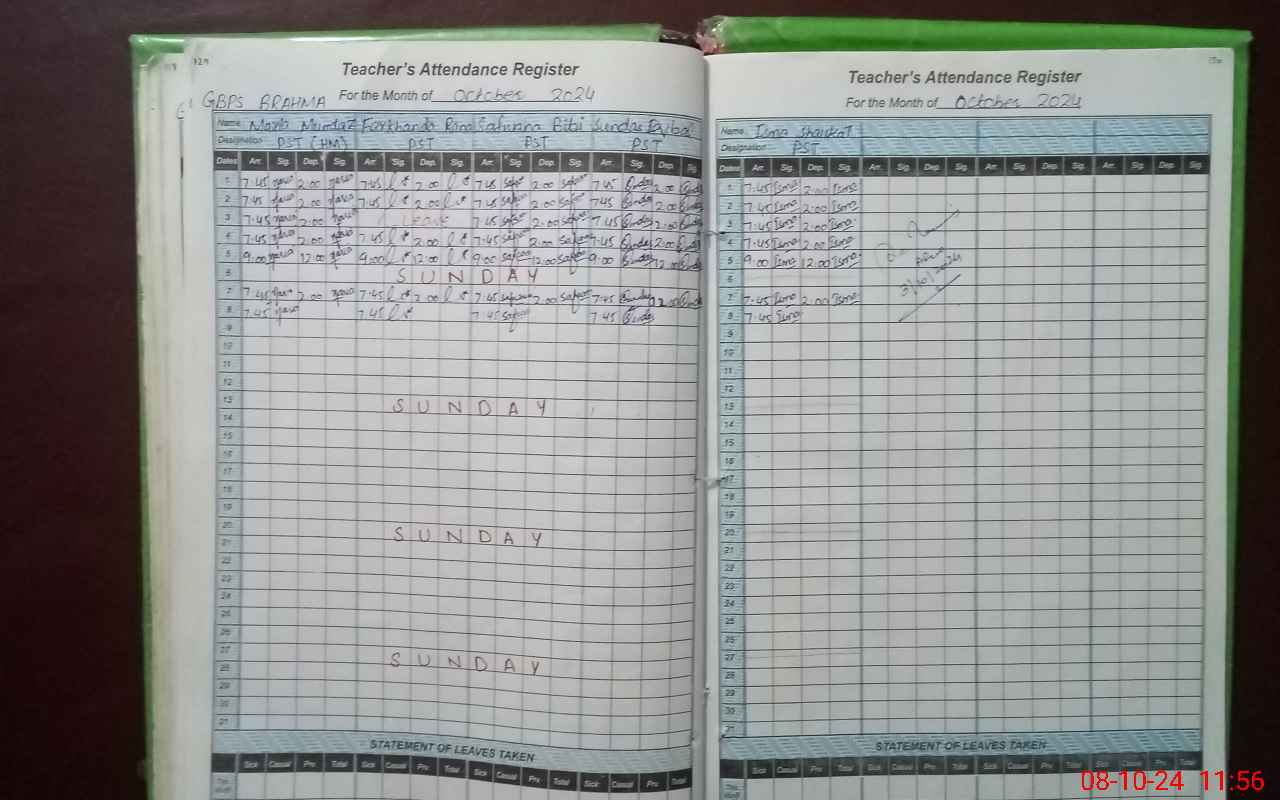 129
Teacher's Attendance Register
GBPS BRAHMA For the Month of October 2024
Name Maria Mumtaz Farkhanda Safoora Bibi Sundas
Designation PST (HM) PST PST PST
Dates Arr. Sig. Dep. Sig. Arr. Sig. Dep. Sig. Arr. Sig. Dep. Sig. Arr. Sig. Dep. Sig.
1 7.45 2.00 7.45 2.00 7.45 2.00 7.45 2.00
2 7.45 2.00 7.45 2.00 7.45 2.00 7.45 2.00
3 7.45 2.00 Leave 7.45 2.00 7.45 2.00
4 7.45 2.00 7.45 2.00 7.45 2.00 7.45 2.00
5 9.00 12.00 9.00 12.00 9.00 12.00 9.00 12.00
6 SUNDAY
7 7.45 2.00 7.45 2.00 7.45 2.00 7.45 2.00
8 7.45 7.45 7.45 7.45
9
10
11
12
13 SUNDAY
14
15
16
17
18
19
20 SUNDAY
21
22
23
24
25
26
27 SUNDAY
28
29
30
31
STATEMENT OF LEAVES TAKEN
Sick Casual Prv. Total Sick Casual Prv. Total Sick Casual Prv. Total Sick Casual Prv. Total
This Month
130
Teacher's Attendance Register
For the Month of October 2024
Name Isma Shaukat
Designation PST
Dates Arr. Sig. Dep. Sig. Arr. Sig. Dep. Sig. Arr. Sig. Dep. Sig. Arr. Sig. Dep. Sig.
1 7.45 Isma 2.00 Isma
2 7.45 Isma 2.00 Isma
3 7.45 Isma 2.00 Isma
4 7.45 Isma 2.00 Isma
5 9.00 Isma 12.00 Isma
3/10/2024
6
7 7.45 Isma 2.00 Isma
8 7.45 Isma
9
10
11
12
13
14
15
16
17
18
19
20
21
22
23
24
25
26
27
28
29
30
31
STATEMENT OF LEAVES TAKEN
Sick Casual Prv. Total Sick Casual Prv. Total Sick Casual Prv. Total Sick Casual Prv. Total
This Month
08-10-24 11:56